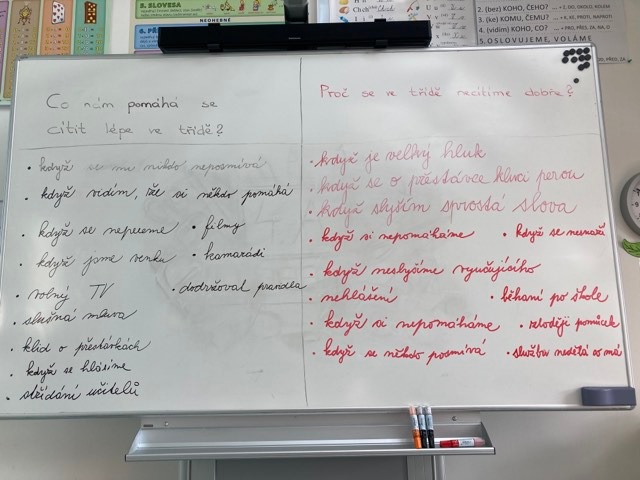 2. SLOVESA
NEOHEBNÉ
2. (bez) KOHO, ČEHO?
3. (ke) KOMU, ČEMU?
4. (vidím) KOHO, CO?
5. OSLOVUJEME, VOLÁME
Co nám pomáhá se
cítit lépe ve třídě?
• když se mu nikdo neposmívá
• když vidím, že si někdo pomáhá
• když se nepereme
• filmy
• když jsme venku
• kamarádi
• volný TV
• dodržoval pravidla
• slušná mluva
• klid o přestávkách
• když se hlásíme
• střídání učitelů
Proč se ve třídě necítíme dobře?
• když je velký hluk
• když se o přestávce kluci perou
• když slyším sprostá slova
• když si nepomáháme
• když se nesnaží
• když neslyšíme vyučujícího
• nehlášení
• běhání po škole
• když si nepomáháme
• zloději pomůcek
• když se někdo posmívá
• služba nedělá co má